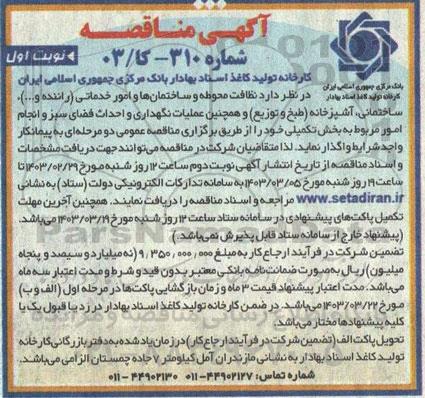 آگهی مناقصه
شماره ۳۱۰- کا/۰۳
نوبت اول
بانک مرکزی جمهوری اسلامی ایران
کارخانه تولید کاغذ اسناد بهادار
کارخانه تولید کاغذ اسناد بهادار بانک مرکزی جمهوری اسلامی ایران
در نظر دارد نظافت محوطه و ساختمان‌ها و امور خدماتی (راننده و...)،
ساختمانی، آشپزخانه (طبخ و توزیع) و همچنین عملیات نگهداری و احداث فضای سبز و انجام
امور مربوط به بخش تکمیلی خود را از طریق برگزاری مناقصه عمومی دو مرحله‌ای به پیمانکار
واجد شرایط واگذار نماید. لذا متقاضیان شرکت در مناقصه می‌توانند جهت دریافت مشخصات
و اسناد مناقصه از تاریخ انتشار آگهی نوبت دوم ساعت ۱۲ روز شنبه مورخ ۱۴۰۳/۰۲/۲۹ تا
ساعت ۱۹ روز شنبه مورخ ۱۴۰۳/۰۳/۰۵ به سامانه تدارکات الکترونیکی دولت (ستاد) به نشانی
www.setadiran.ir مراجعه و اسناد مناقصه را دریافت نمایند. همچنین آخرین مهلت
تکمیل پاکت‌های پیشنهادی در سامانه ستاد ساعت ۱۲ روز شنبه مورخ ۱۴۰۳/۰۳/۱۹ می‌باشد.
(پیشنهاد خارج از سامانه ستاد قابل پذیرش نمی‌باشد.)
تضمین شرکت در فرآیند ارجاع کار به مبلغ ۹,۳۵۰,۰۰۰,۰۰۰ (نه میلیارد و سیصد و پنجاه
میلیون) ریال به صورت ضمانت‌نامه بانکی معتبر بدون قید و شرط و مدت اعتبار سه ماه
می‌باشد. مدت اعتبار پیشنهاد قیمت ۳ ماه و زمان بازگشایی پاکت‌ها در مرحله اول (الف و ب)
مورخ ۱۴۰۳/۰۳/۲۲ می‌باشد. در ضمن کارخانه تولید کاغذ اسناد بهادار در رد یا قبول یک یا
کلیه پیشنهادها مختار می‌باشد.
تحویل پاکت الف (تضمین شرکت در فرآیند ارجاع کار) در زمان یاد شده به دفتر بازرگانی کارخانه
تولید کاغذ اسناد بهادار به نشانی مازندران آمل کیلومتر ۷ جاده چمستان الزامی می‌باشد.
شماره تماس: ۴۴۹۰۲۱۲۷-۰۱۱ ۴۴۹۰۲۱۳۰-۰۱۱